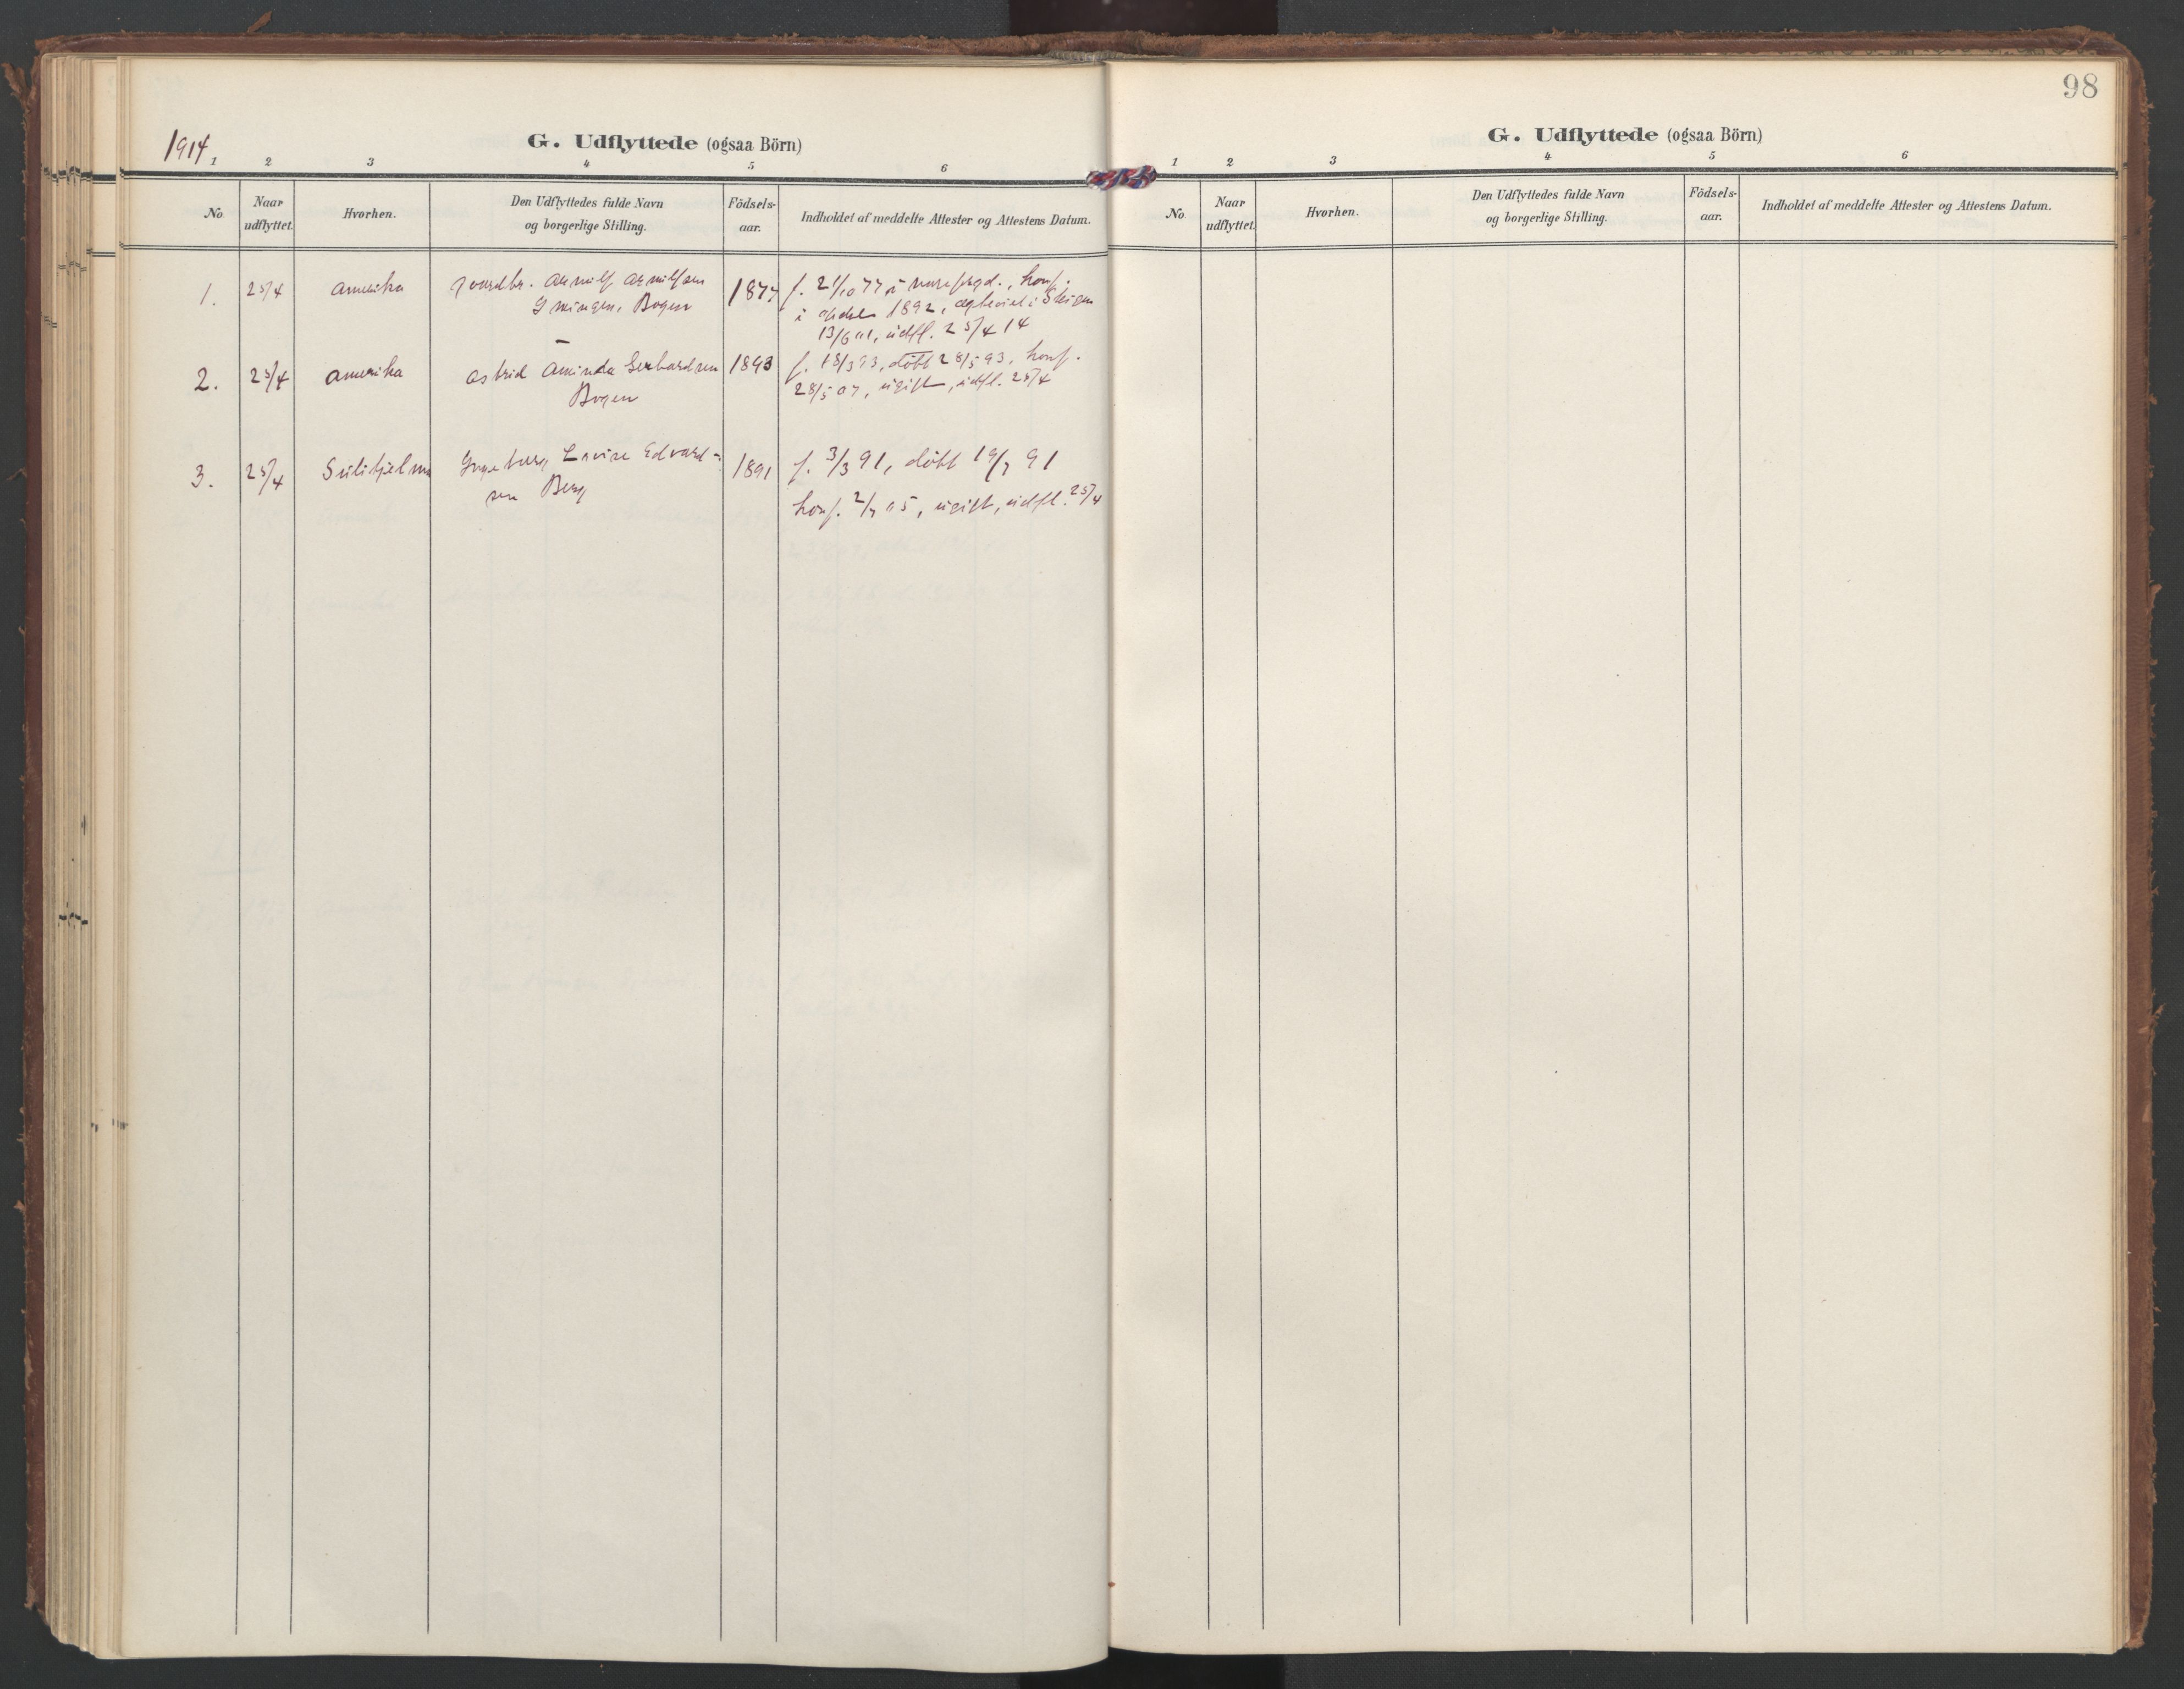 98
1914
G. Udflyttede (ogsaa Börn)
1 2 3 4 5 6
No.
Naar udflyttet.
Hvorhen.
Den Udflyttedes fulde Navn
og borgerlige Stilling.
Födsels-
aar.
Indholdet af meddelte Attester og Attestens Datum.
1. 25/4 Amerika Gaardbr. Arnulf Arnulfsen 1877 f. 21/10 77 i, konf.
Bogen i 1892, i Steigen
13/6 01, udfl. 25/4 14
2. 25/4 Amerika Astrid Aminda Gerhardsen 1893 f. 18/3 93, döbt 28/5 93, konf.
Bogen 28/5 07, ugift, udfl. 25/4
3. 25/4 Sulitjelma Ingeborg Lovise Edvard- 1891 f. 3/3 91, döbt 19/7 91
sen Berg konf. 2/7 05, ugift, udfl. 25/4
G. Udflyttede (ogsaa Börn)
1 2 3 4 5 6
No.
Naar udflyttet.
Hvorhen.
Den Udflyttedes fulde Navn
og borgerlige Stilling.
Födsels-
aar.
Indholdet af meddelte Attester og Attestens Datum.